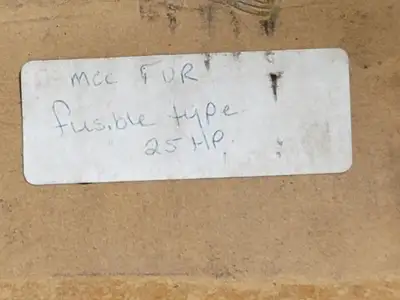 MCC FVR
fusible type
25 HP.